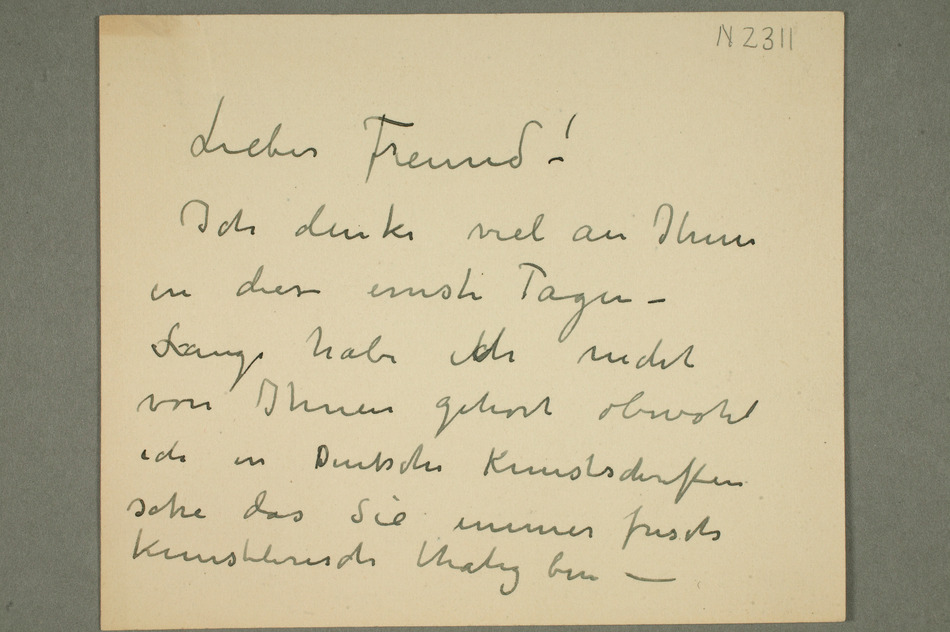 N 2311
Lieber Freund!
Ich denke viel an Ihnen
in diese ernste Tagen –
Lange habe ich nicht
von Ihnen gehört obwohl
ich in Deutsche Kunstschriften
sehe das Sie immer frisch
Kunstlerisch thatig bin —